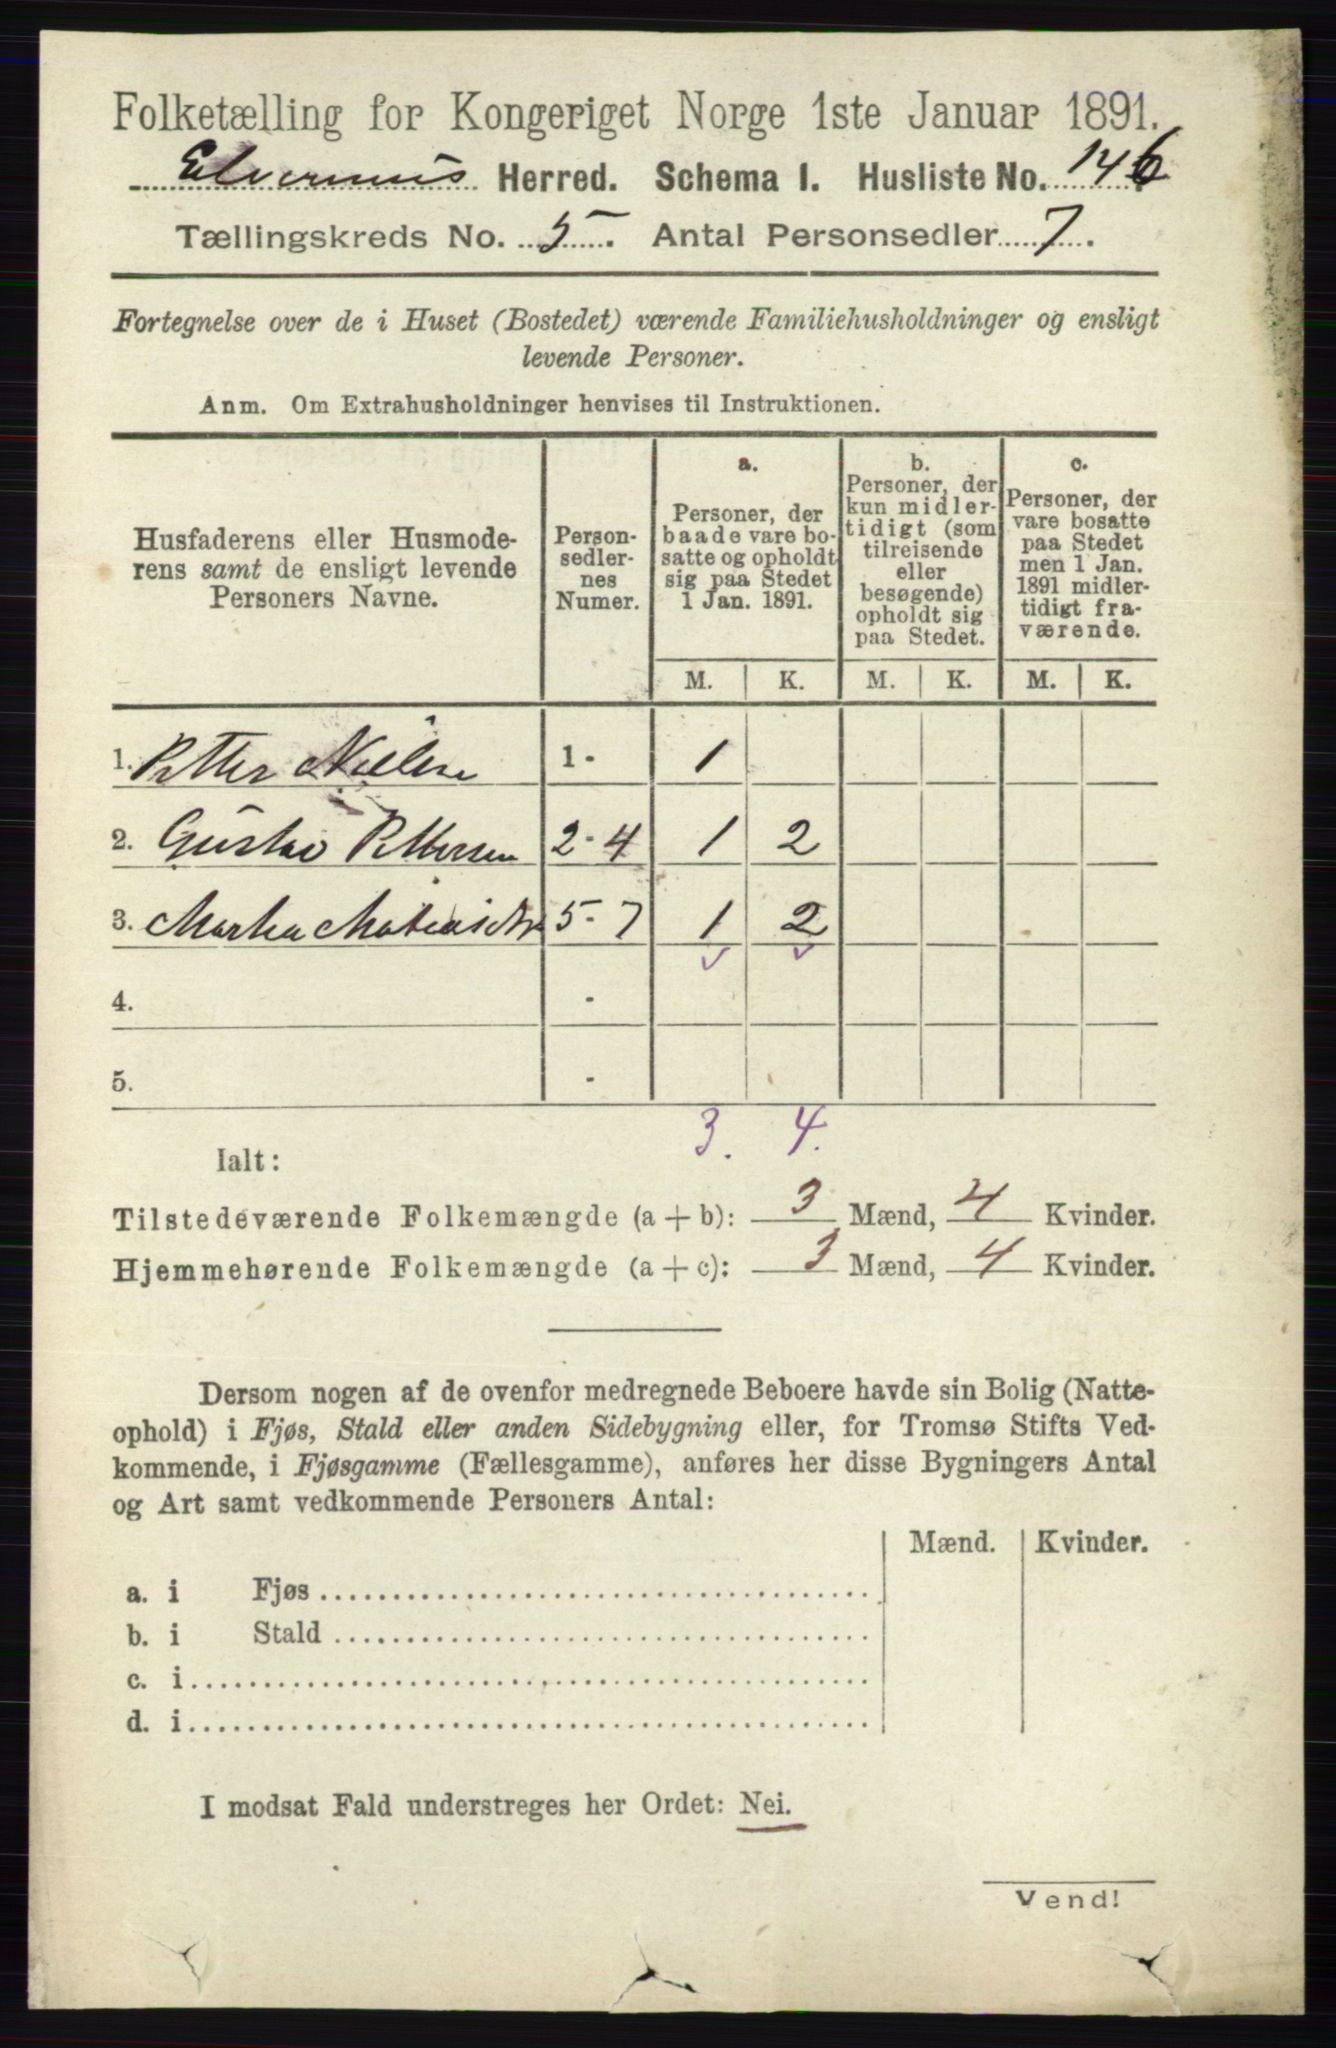 Folketælling for Kongeriget Norge 1ste Januar 1891.
Elverums Herred. Schema I. Husliste No. 146
Tællingskreds No. 5. Antal Personsedler 7.
Fortegnelse over de i Huset (Bostedet) værende Familiehusholdninger og ensligt
levende Personer.
Anm. Om Extrahusholdninger henvises til Instruktionen.
Husfaderens eller Husmode-
rens samt de ensligt levende
Personers Navne.
Person-
sedler-
nes
Numer.
a.
Personer, der
baade vare bo-
satte og opholdt
sig paa Stedet
1 Jan. 1891.
b.
Personer, der
kun midler-
tidigt (som
tilreisende
eller
besøgende)
opholdt sig
paa Stedet.
c.
Personer, der
vare bosatte
paa Stedet
men 1 Jan.
1891 midler-
tidigt fra-
værende.
M. K. M. K. M. K.
1. Petter Nilsen 1 - 1
2. Gustav Pettersen 2 - 4 1 2
3. Martha 5 - 7 1 2
4. -
5. -
3. 4.
Ialt:
Tilstedeværende Folkemængde (a + b): 3 Mænd, 4 Kvinder.
Hjemmehørende Folkemængde (a + c): 3 Mænd, 4 Kvinder.
Dersom nogen af de ovenfor medregnede Beboere havde sin Bolig (Natte-
ophold) i Fjøs, Stald eller anden Sidebygning eller, for Tromsø Stifts Ved-
kommende, i Fjøsgamme (Fællesgamme), anføres her disse Bygningers Antal
og Art samt vedkommende Personers Antal:
Mænd. Kvinder.
a. i Fjøs
b. i Stald
c. i
d. i
I modsat Fald understreges her Ordet: Nei.
Vend!